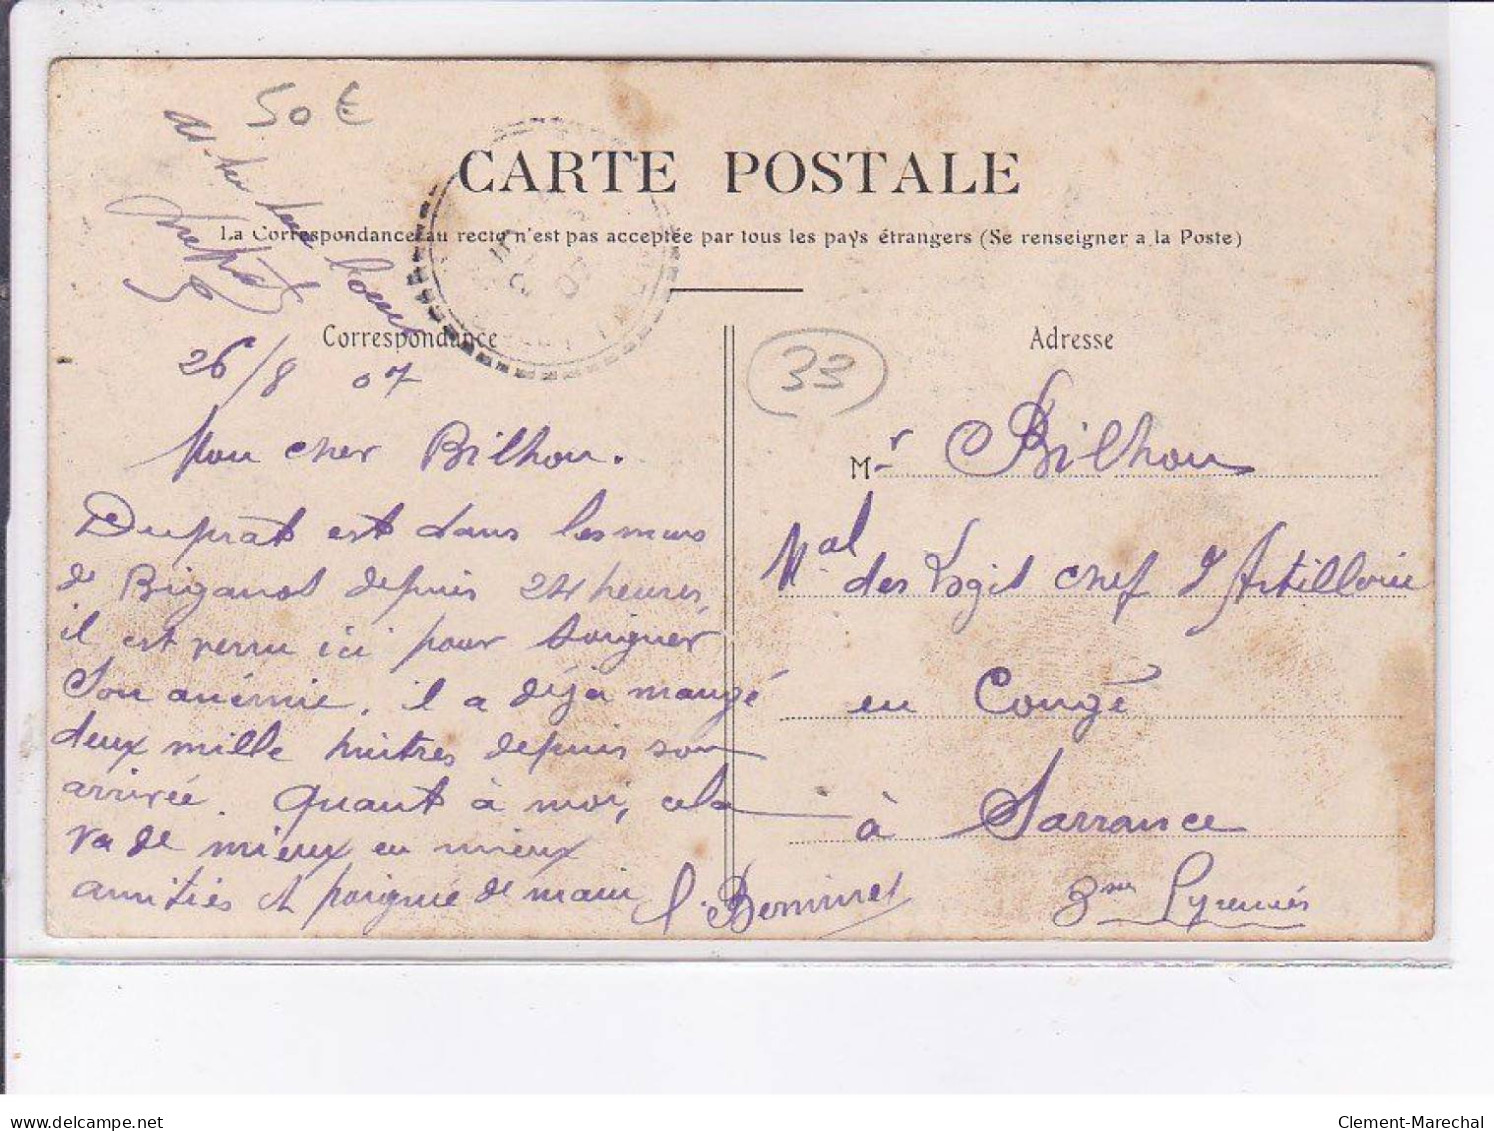 50 €
CARTE POSTALE
La Correspondance au recto n'est pas acceptée par tous les pays étrangers (Se renseigner a la Poste)
Correspondance
26/8 07
Mon cher Bilhou.
Duprat est dans les murs
de Biganos depuis 24 heures,
il est venu ici pour soigner
son anémie, il a déja mangé
deux mille huitres depuis son
arrivée. Quant à moi, cela
va de mieux en mieux
amitiés et poignée de main
Adresse
33
Mr Bilhou
Mal des Logis chef d'Artillerie
en Congé
à Sarrance
Bses Pyrennés
delcampe.net
Clement-Marechal